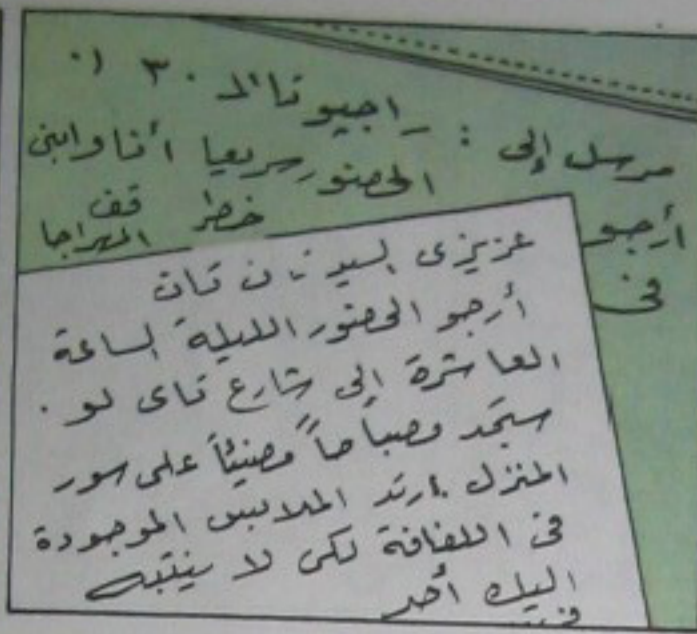 راجيوتالا ٣٠
مرسل إلى :
أرجو الحضور سريعا أنا وابني
فى خطر قف
المهراجا
عزيزى السيد تان تان
أرجو الحضور الليلة الساعة
العاشرة إلى شارع تاى لو .
ستجد مصباحاً مضيئاً على سور
المنزل . ارتد الملابس الموجودة
فى اللفافة لكى لا ينتبه
اليك أحد